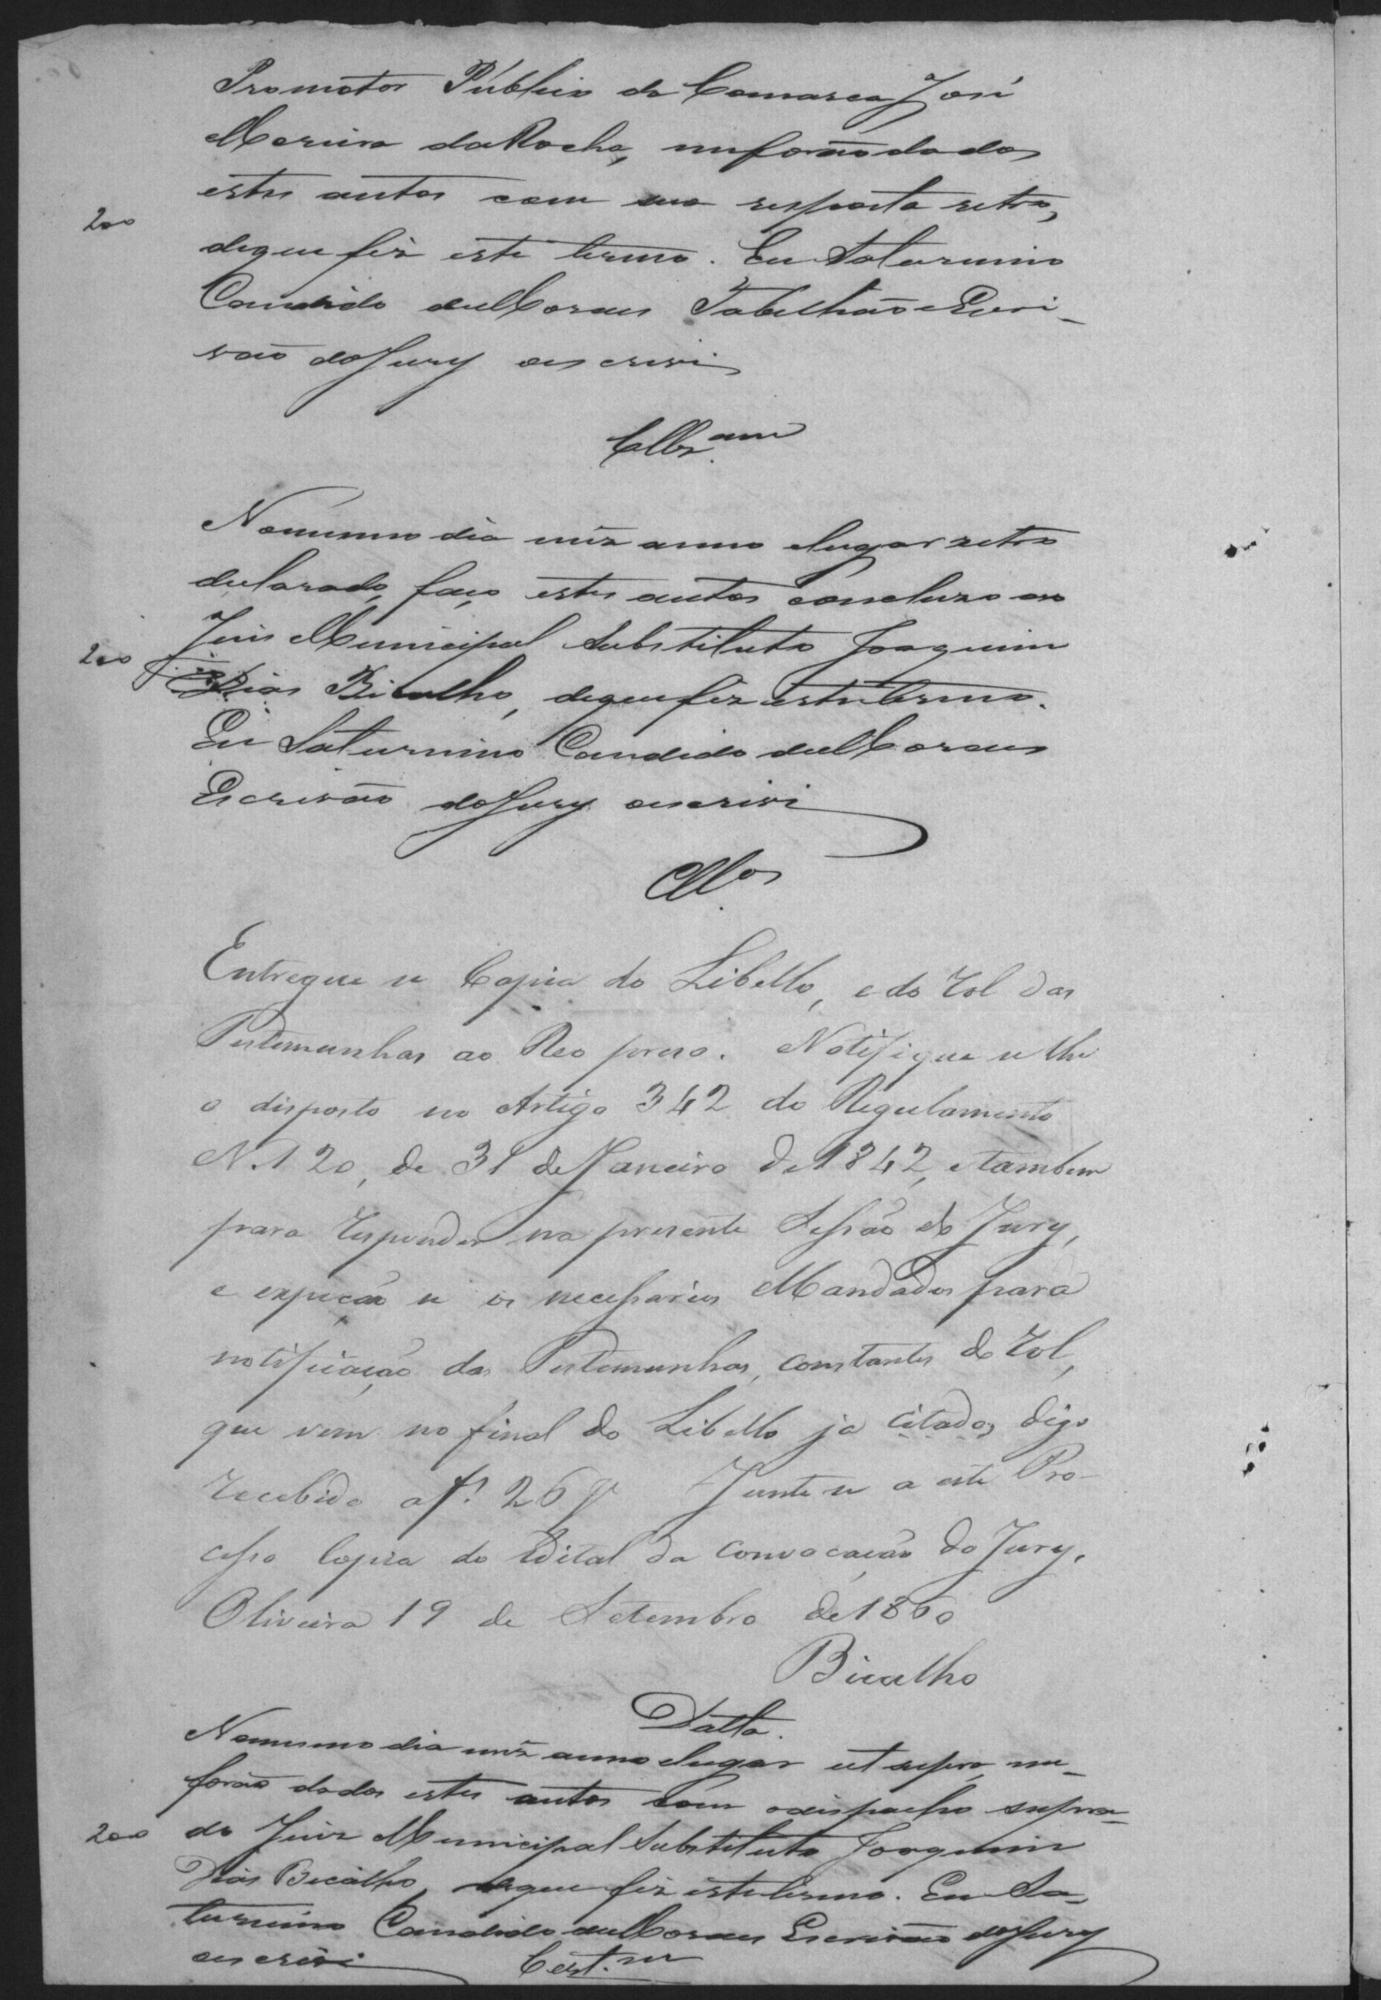 Promotor Publico da Comarca José
Moreira da Rocha, me forão dados
estes autos com sua resposta retro,
200
de que fiz este termo. Eu Saturnino
Candido de Moraes Tabellião e Escri-
vão do Jury o escrevi
No mesmo dia mez anno e lugar retro
declarado, faço estes autos concluzo ao
Juis Municipal Substituto Joaquim
200
Dias Bicalho, de que fiz este termo.
Eu Saturnino Candido de Moraes
Escrivão do Jury o escrevi
Cllos
Entregue se Copia do Libello, e do Rol das
Testemunhas ao Reo preso. Notifique se lhe
o disposto no Artigo 342 do Regulamento
N. 120, de 31 de Janeiro de 1842, e tambem
para responder na presente Sessão do Jury,
e expeção se os necessarios Mandados para
notificação das Testemunhas, constantes do Rol,
que vem no final do Libello ja citado, digo
recebido a f. 26 v Junte se a este Pro-
cesso Copia do Edital da convocação do Jury.
Oliveira 19 de Setembro de 1860
Bicalho
Datta.
No mesmo dia mez anno e lugar ut supra, me
forão dados estes autos com o dispacho supra
200
do Juiz Municipal Substituto Joaquim
Dias Bicalho, de que fiz este termo. Eu Sa-
turnino Candido de Moraes Escrivão do Jury
o escrevi
Cert.